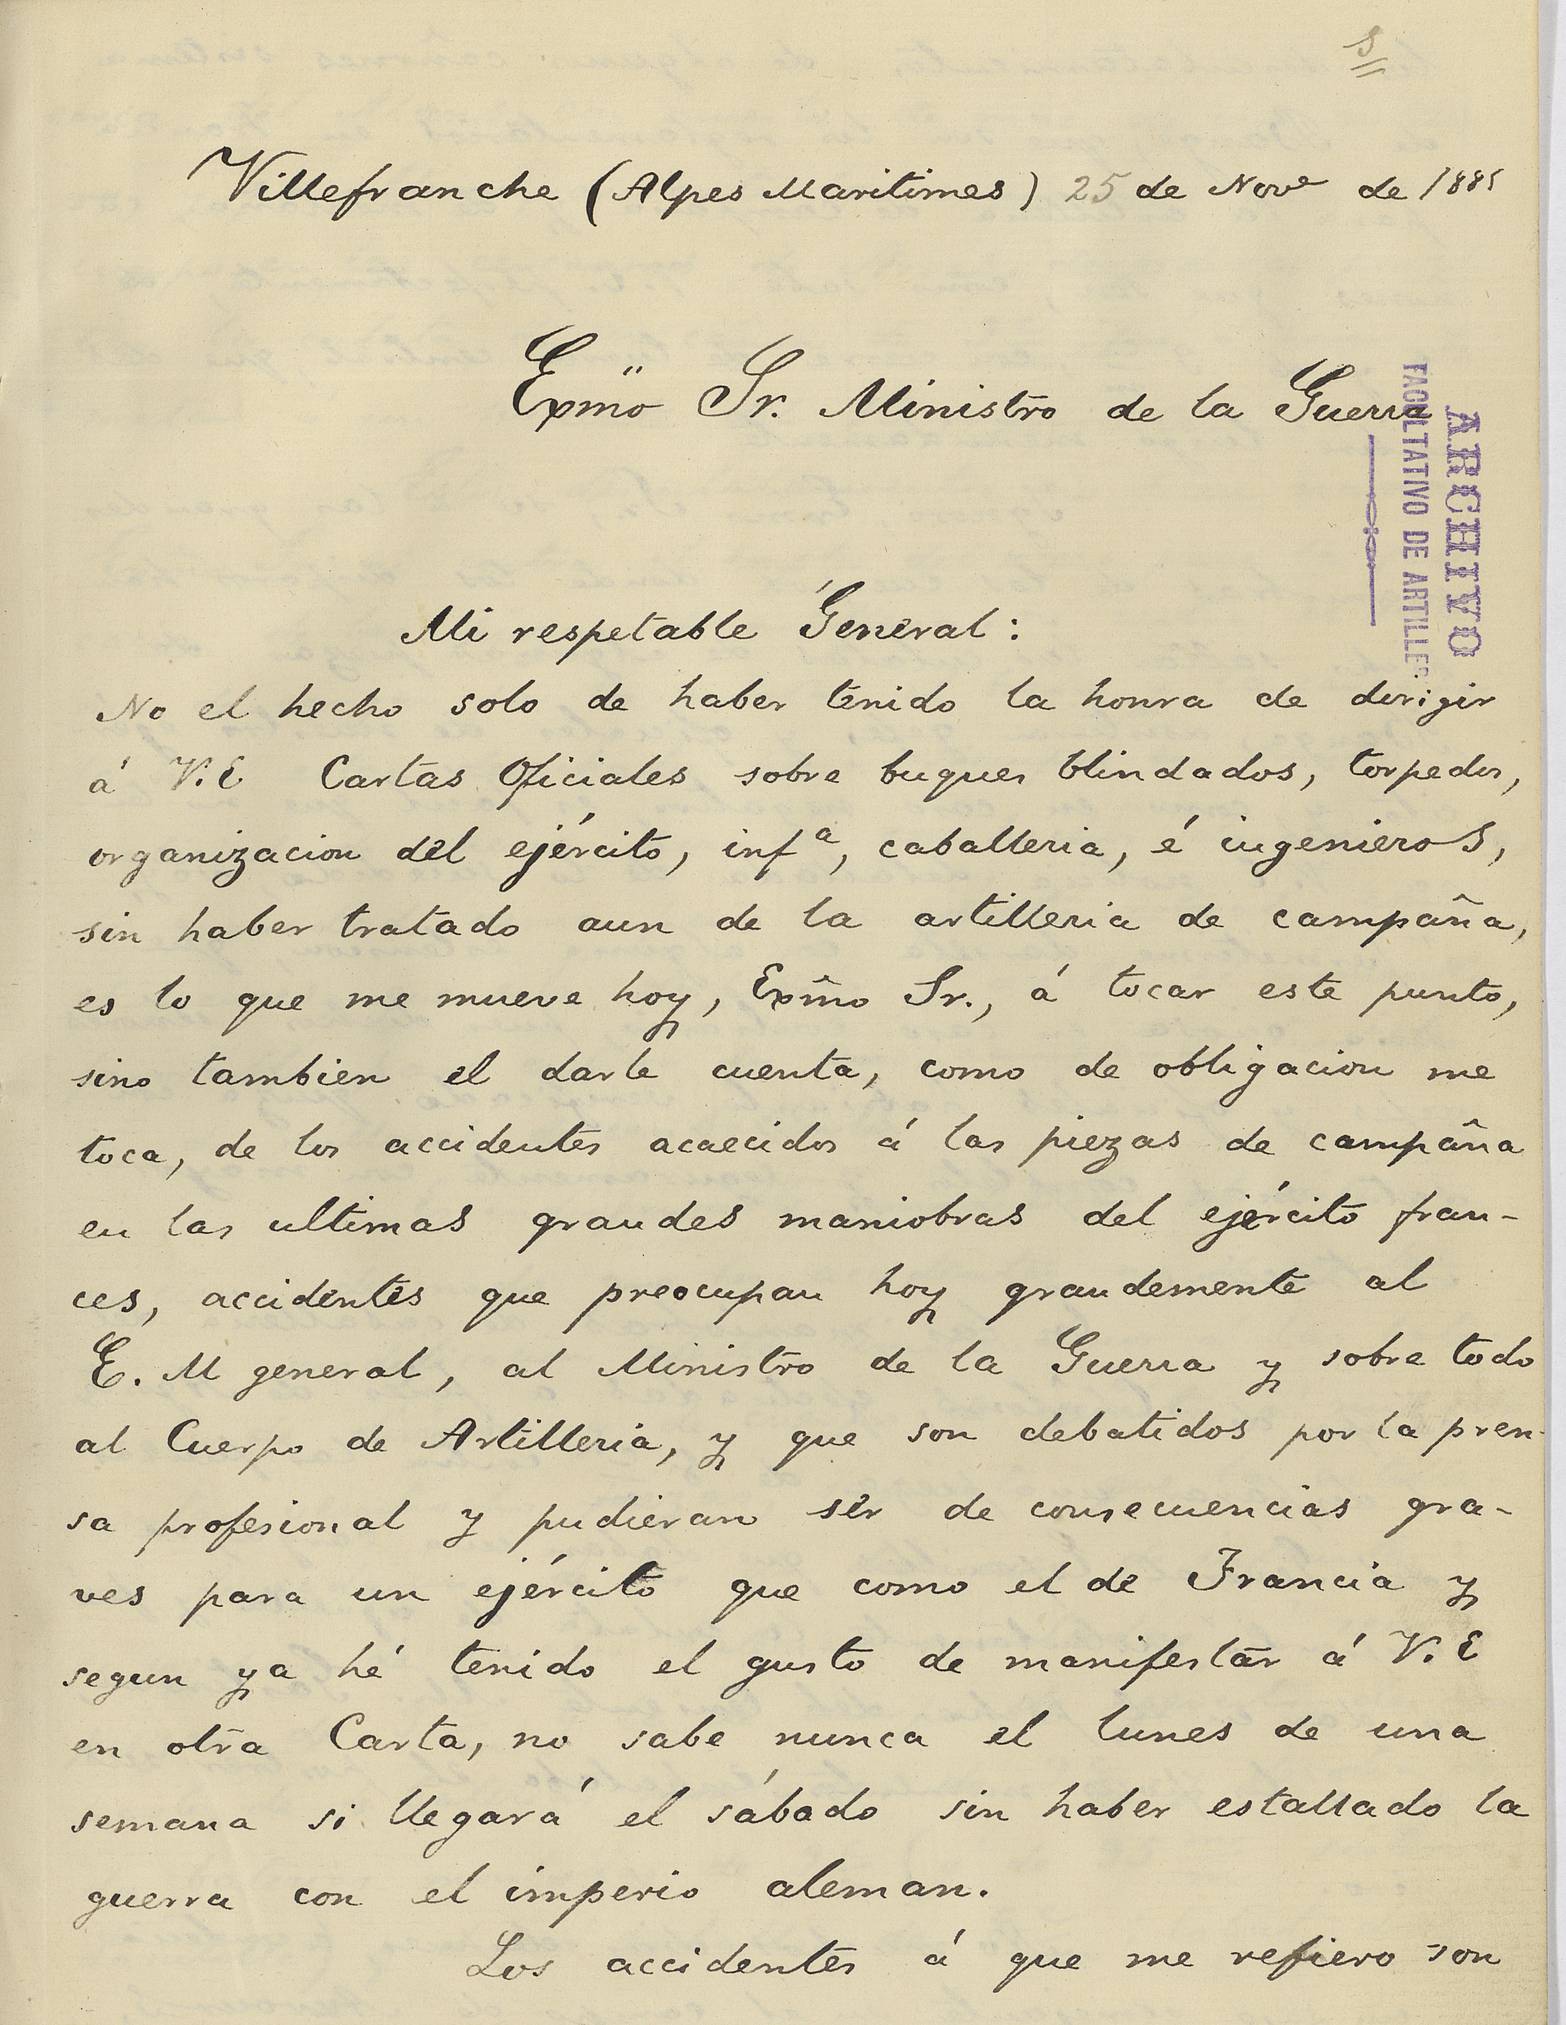 Villefranche (Alpes Maritimes) 25 de Nov.e de 188
Exmo Sr. Ministro de la Guerra
ARCHIVO
FACULTATIVO DE ARTILLER
Mi respetable General:
No el hecho solo de haber tenido la honra de dirigir
á V.E Cartas Oficiales sobre buques blindados, torpedos,
organizacion del ejército, infª, caballeria, é ingenieros,
sin haber tratado aun de la artilleria de campaña,
es lo que me mueve hoy, Exmo Sr., á tocar este punto,
sino tambien el darle cuenta, como de obligacion me
toca, de los accidentes acaecidos á las piezas de campaña
en las ultimas grandes maniobras del ejército fran-
ces, accidentes que preocupan hoy grandemente al
E. M general, al Ministro de la Guerra y sobre todo
al Cuerpo de Artilleria, y que son debatidos por la pren-
sa profesional y pudieran ser de consecuencias gra-
ves para un ejército que como el de Francia y
segun ya hé tenido el gusto de manifestar á V. E
en otra Carta, no sabe nunca el lunes de una
semana si llegará el sábado sin haber estallado la
guerra con el imperio aleman.
Los accidentes á que me refiero son